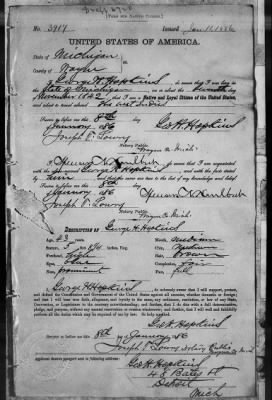 [FORM FOR NATIVE CITIZEN.]
No. 3917 Issued Jan. 11, 1886
UNITED STATES OF AMERICA.
State of Michigan
County of Wayne
I, George H. Hopkins, do swear that I was born in the
State of Michigan, on or about the seventh day of
November 1842, that I am a Native and Loyal Citizen of the United States,
and about to travel abroad
Sworn to before me this 8th
day of January 1886 Geo H. Hopkins
Joseph T. Lowry
Notary Public
Wayne Co Mich
I, Spencer, do swear that I am acquainted
with the above-named George H. Hopkins, and with the facts
stated by him, and that the same are true to the best of my knowledge and belief.
Sworn to before me this 8th
day of January 1886
Joseph T. Lowry
Notary Public
Wayne Co. Mich.
DESCRIPTION OF George H. Hopkins
Age, 43 years. Mouth, medium
Stature, 5 feet inches, Eng. Chin,
Forehead, high Hair, brown
Eyes, Complexion, fair
Nose, prominent Face, full
I, George H. Hopkins, do solemnly swear that I will support, protect,
and defend the Constitution and Government of the United States against all enemies, whether domestic or foreign;
and that I will bear true faith, allegiance, and loyalty to the same, any ordinance, resolution, or law of any State,
Convention, or Legislature to the contrary notwithstanding; and further, that I do this with a full determination,
pledge, and purpose, without any mental reservation or evasion whatsoever; and further, that I will well and faithfully
perform all the duties which may be required of me by law. So help me God.
Geo H. Hopkins
Sworn to before me this 8th day of January 86
Joseph T. Lowry Notary Public
Wayne Co Mich
Applicant desires passport sent to following address:
Geo H. Hopkins
Bates St
Detroit
Mich